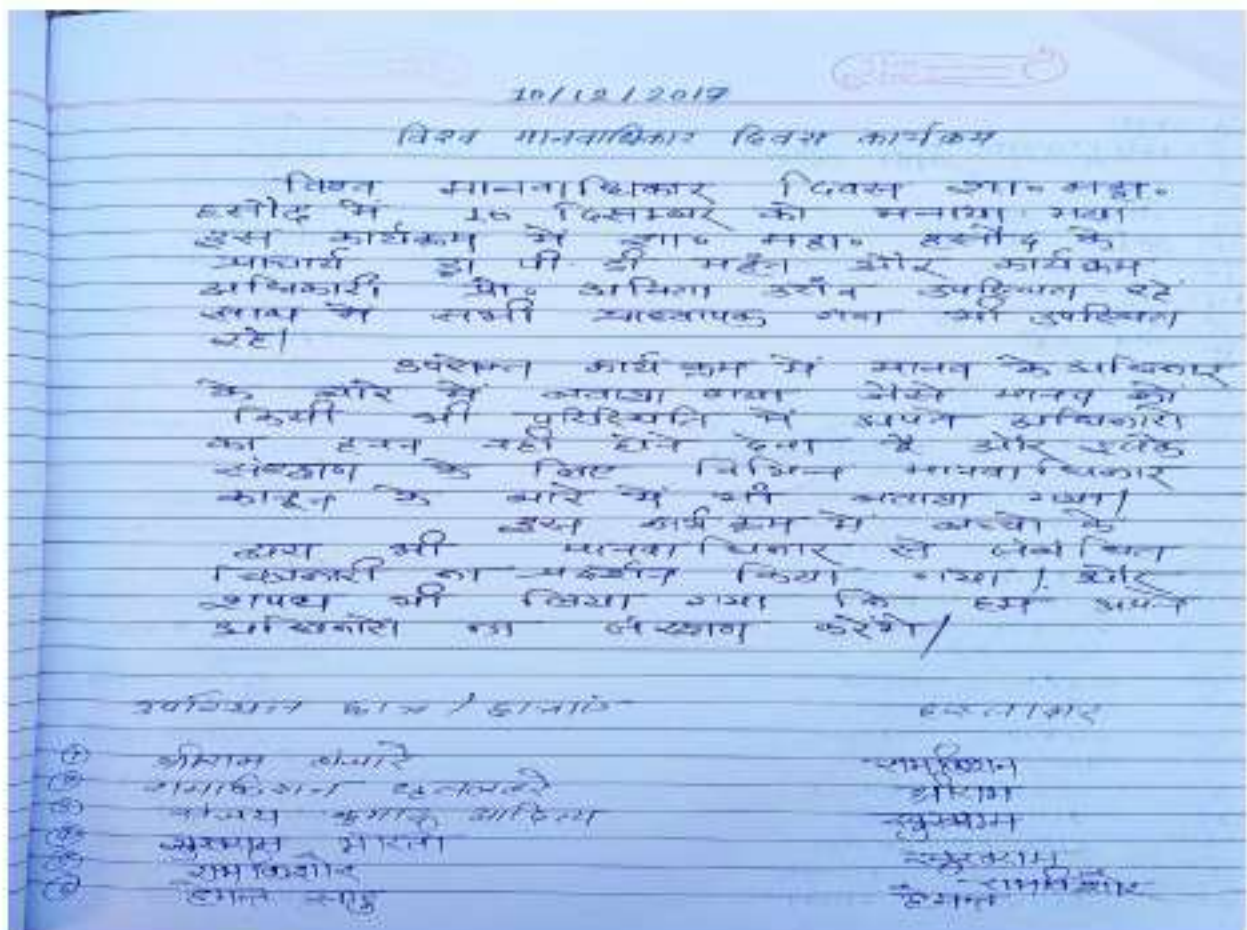 10/12/2017
विश्व मानवाधिकार दिवस कार्यक्रम
विश्व मानवाधिकार दिवस शा॰ महा॰
हसौद में 10 दिसम्बर को मनाया गया
इस कार्यक्रम में शा॰ महा॰ हसौद के
प्राचार्य डा पी. डी महंत और कार्यक्रम
अधिकारी प्रो॰ अनिता उराँव उपस्थित रहे
साथ में सभी प्राध्यापक गण भी उपस्थित
रहे।
उपरोक्त कार्यक्रम में मानव के अधिकार
के बारे में बताया गया जैसे मानव को
किसी भी परिस्थिति में अपने अधिकारो
का हनन नही होने देना है और इसके
संरक्षण के लिए विभिन्न मानवाधिकार
कानून के बारे में भी बताया गया।
इस कार्यक्रम में बच्चो के
द्वारा भी मानवाधिकार से संबंधित
चित्रकारी का प्रदर्शन किया गया। और
शपथ भी लिया गया कि हम अपने
अधिकारो का संरक्षण करेंगे।
उपस्थित छात्र / छात्राएं हस्ताक्षर
श्रीराम बंजारे रामकिशन
रामकिशन श्रीराम
कुमार आदित्य
भारती
रामकिशोर रामकिशोर
हेमन्त साहु हेमन्त